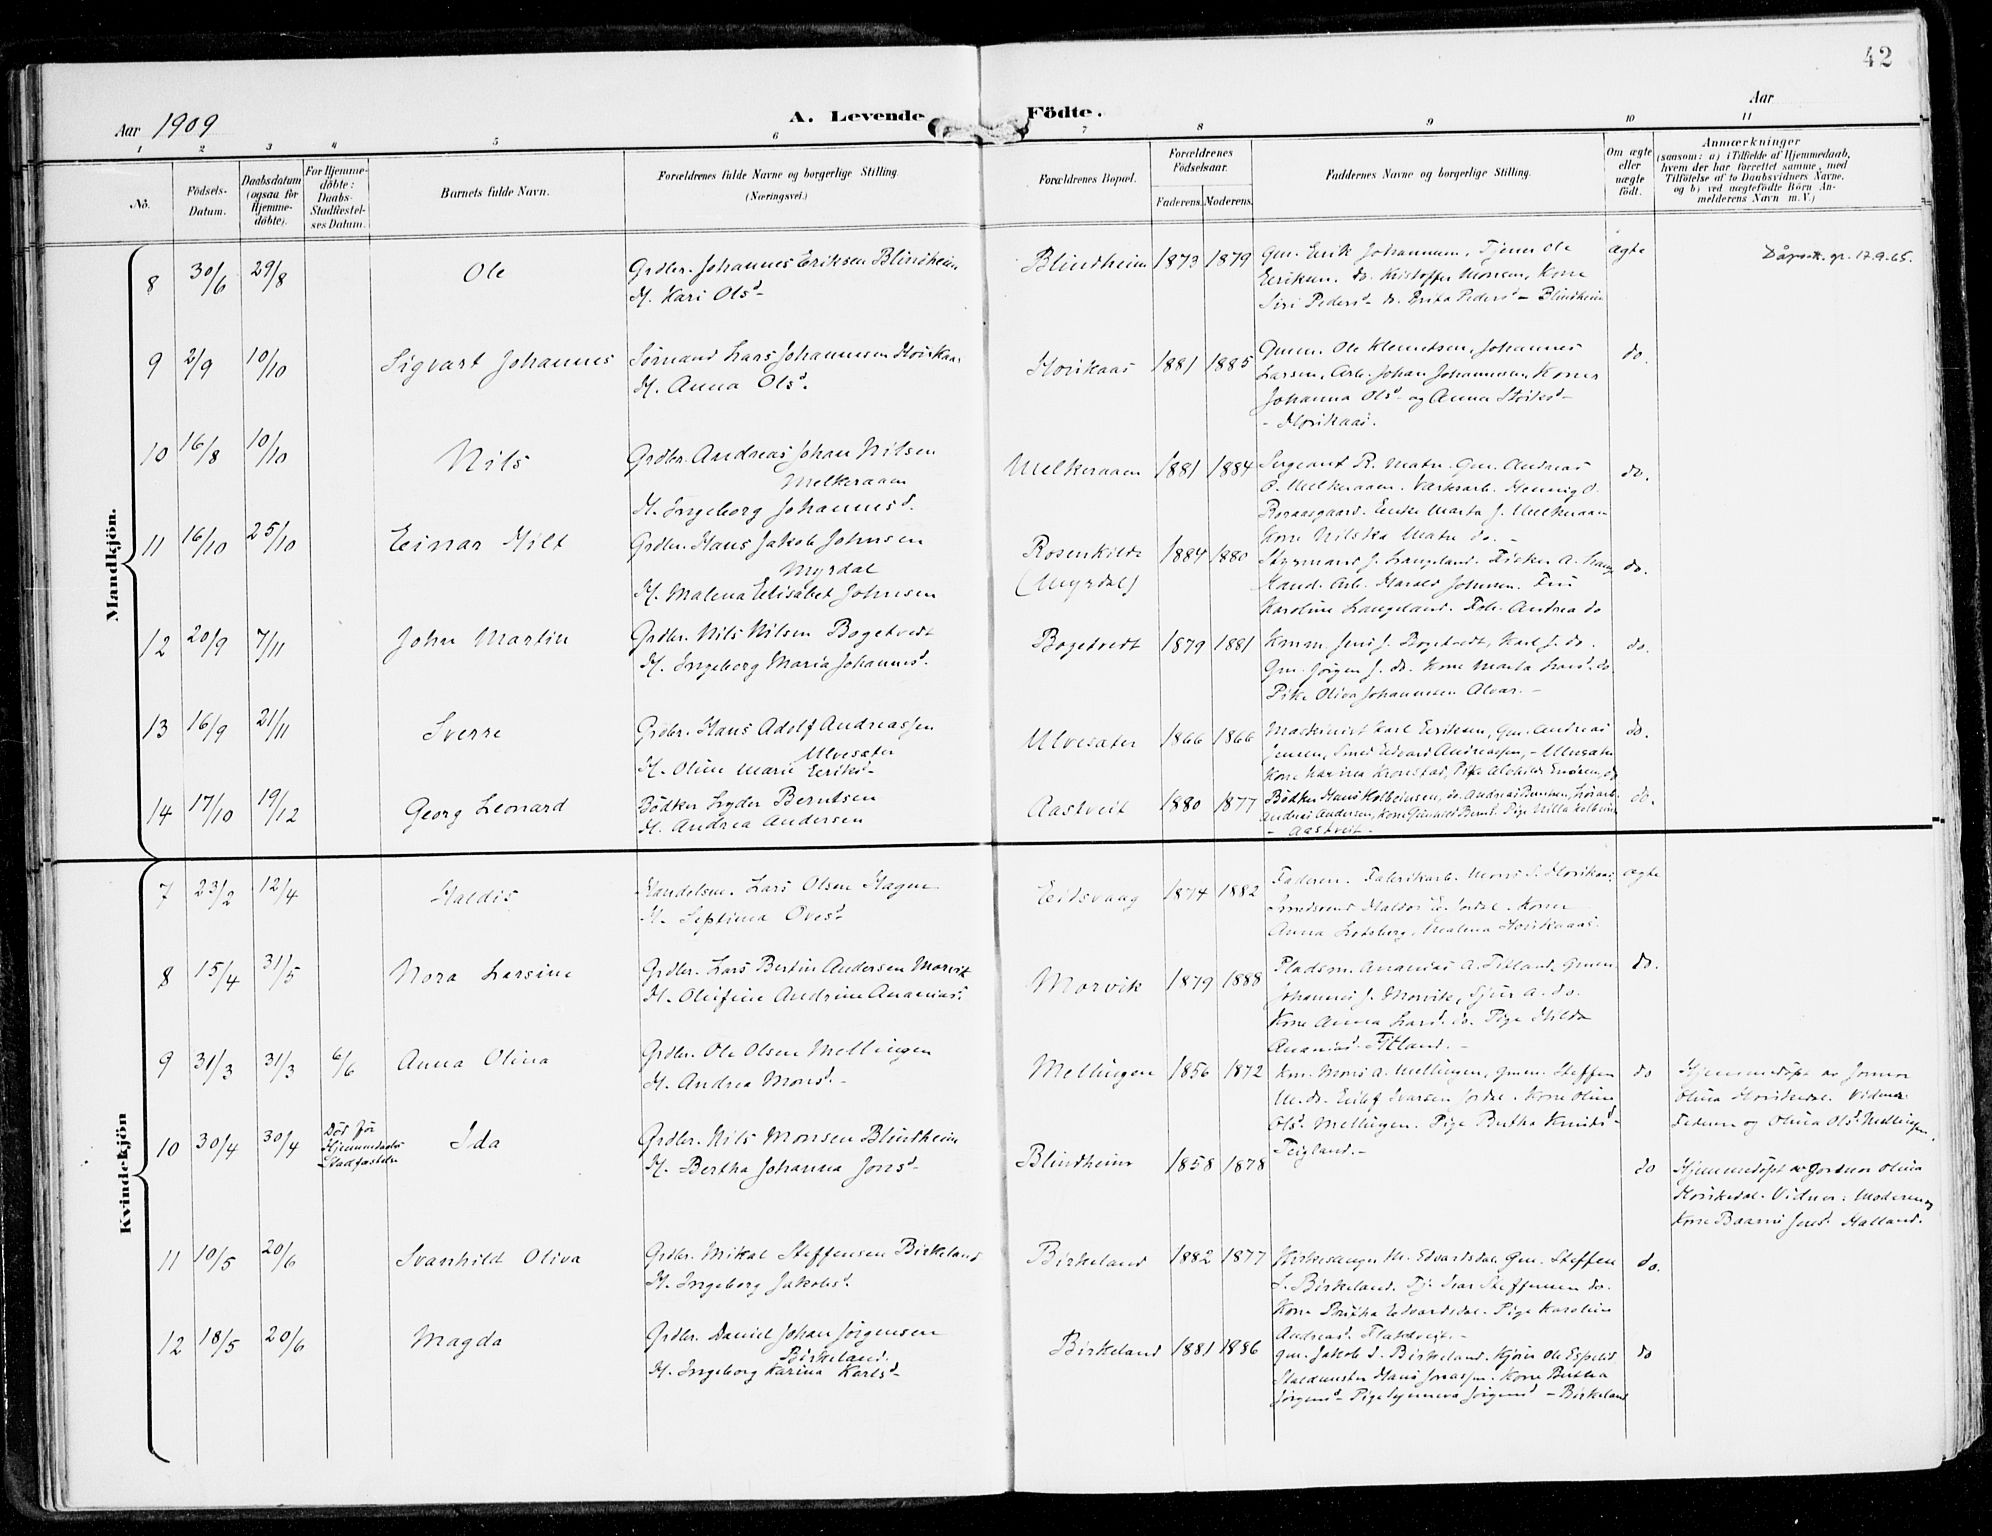 42
Aar 1909
A. Levende Födte.
Aar
1 2 3 4 5 6 7 8 9 10 11
No.
Födsels-Datum.
Daabsdatum (ogsaa for Hjemmedöbte).
For Hjemmedöbte: Daabs-Stadfæstelses Datum.
Barnets fulde Navn.
Forældrenes fulde Navne og borgerlige Stilling.
(Næringsvei.)
Forældrenes Bopæl.
Forældrenes Födselsaar.
Faderens. Moderens.
Faddernes Navne og borgerlige Stilling.
Om ægte eller uægte födt.
Anmærkninger
(saasom: a) i Tilfælde af Hjemmedaab, hvem der har forrettet samme, med Tilföielse af to Daabsvidners Navne, og b) ved uægtefödte Börn Anmelderens Navn m. V.)
Mandkjön.
8 30/6 29/8 Ole
Grdbr. Johannes Eriksen Blindheim
H. Kari Olsd
Blindheim 1873 1879
Gm. Erik Johannesen, Tjener Ole
Eriksen, do. Kristoffer Monsen, Kone
Siri Pedersd do. Brita Pedersd - Blindheim
ægte
Dåpsatt. gr. 17.9.65.
9 2/9 10/10 Sigvart Johannes
Sömand Lars Johannesen Horikaas
H. Anna Olsd.
Horikaas 1881 1885
Gmm. Ole Klemetsen, Johannes
Larsen, Arb. Johan Johannesen, Koner
Johanna Olsd og Anna
- Horikaas.
do.
10 16/8 10/10 Nils
Grdbr. Andreas Johan Nilsen
Melkeraaen
H. Ingeborg Johannesd.
Melkeraaen 1881 1884
Sergeant R. Matre. Gm. Andreas
O. Melkeraaen. Værksarb. Henrik O.
Roraasgaard. Enke Marta J. Melkeraaen
Kone Nilska Matre do. -
do.
11 16/10 25/10 Einar Hilt
Grdbr. Hans Jakob Johnsen
Myrdal
H. Malena Elisabet Johnsen
Rosenkilde
(Myrdal) 1884 1880
Styrmand J. Langeland. Fisker A.
Kand. Arb. Harald Johnsen. Fru
Karoline Langeland. Frk. Andrea do
do.
12 20/9 7/11 John Martin
Grdbr. Nils Nilsen Bogetvedt
H. Ingeborg Maria Johannesd.
Bogetvedt 1879 1881
Kmm. Jens J. Bogetvedt, Karl J. do.
Gm. Jörgen J. do. Kone Marta Larsd. do.
Pike Oliva Johannesen Alvær. -
do.
13 16/9 21/11 Sverre
Grdbr. Hans Adolf Andreassen
Ulvesæter
H. Oline Marie Eriksd
Ulvesæter 1866 1866
Maskinist Karl Eriksen, Gm. Andreas
Jensen, Smed Edvard Andreassen, - Ulvesæter
Kone Karina Kronstad, Pike Alvhilde do
do.
14 17/10 19/12 Georg Leonard
Bödker Lyder Berntsen
H. Andrea Andersen
Aastveit 1880 1877
Bödker Hans Kolbeinsen, do. Andreas Berntsen,
Andreas Andersen, Kone Bernt. Pige Villa Kolbeins
- Aastveit -
do.
Kvindekjön
7 23/2 12/4 Haldis
Handelsm. Lars Olsen Hagen
H. Septima Ovesd
Eidsvaag 1874 1882
Faderen. Fabrikarb. Mons S. Horikaas
Smedsvend Haldor E. Jordal. Koner
Anna Lotsberg, Malena Horikaas.
ægte
8 15/4 31/5 Nora Larsine
Grdbr. Lars Bertin Andersen Morvik
H. Olufine Andrine Ananiasd.
Morvik 1879 1888
Pladsm. Ananias A. Titland, Gmm
Johannes J. Morvik, Sjur A. do.
Kone Anna Larsd. do. Pige Hilda
Ananiasd. Titland. -
do.
9 31/3 31/3 6/6 Anna Olina
Grdbr. Ole Olsen Mellingen
H. Andrea Monsd. -
Mellingen 1856 1872
Km. Mons A. Mellingen, Gmm. Steffen
M. do. Eilef Ivarsen Jordal. Kone Oline
Olsd. Mellingen. Pige Bertha Knudsd
Teigland. -
do
Hjemmedöpt av Jormor
Olina Horikedal. Vidner
Faderen og Olina Olsd. Mellingen.
10 30/4 30/4 Död før
Hjemmedaabs
Stadfæstelse
Ida
Grdbr. Nils Monsen Blindheim
H. Bertha Johanna Jonsd
Blindheim 1858 1878
do
Hjemmedöpt av Jordmor Olina
Horikedal. Vidner: Moderen og
Kone Jensd. Halland.
11 10/5 20/6 Svanhild Oliva
Grdbr. Mikal Steffensen Birkeland
H. Ingeborg Jakobsd.
Birkeland 1882 1877
Kirkesanger M. Edvardsdal. Gm. Steffen
S. Birkeland. Tj. Ivar Steffensen do.
Kone Edvardsdal. Pige Karoline
Andreasd. Flaktveit. -
do.
12 18/5 20/6 Magda
Grdbr. Daniel Johan Jörgensen
Birkeland.
H. Ingeborg Karina Karlsd
Birkeland 1881 1886
Gm. Jakob J. Birkeland. Kjörer Ole Espelid
Hans Jonassen. Kone Bertha
Jörgensd - Pige Jörgensd - Birkeland
do